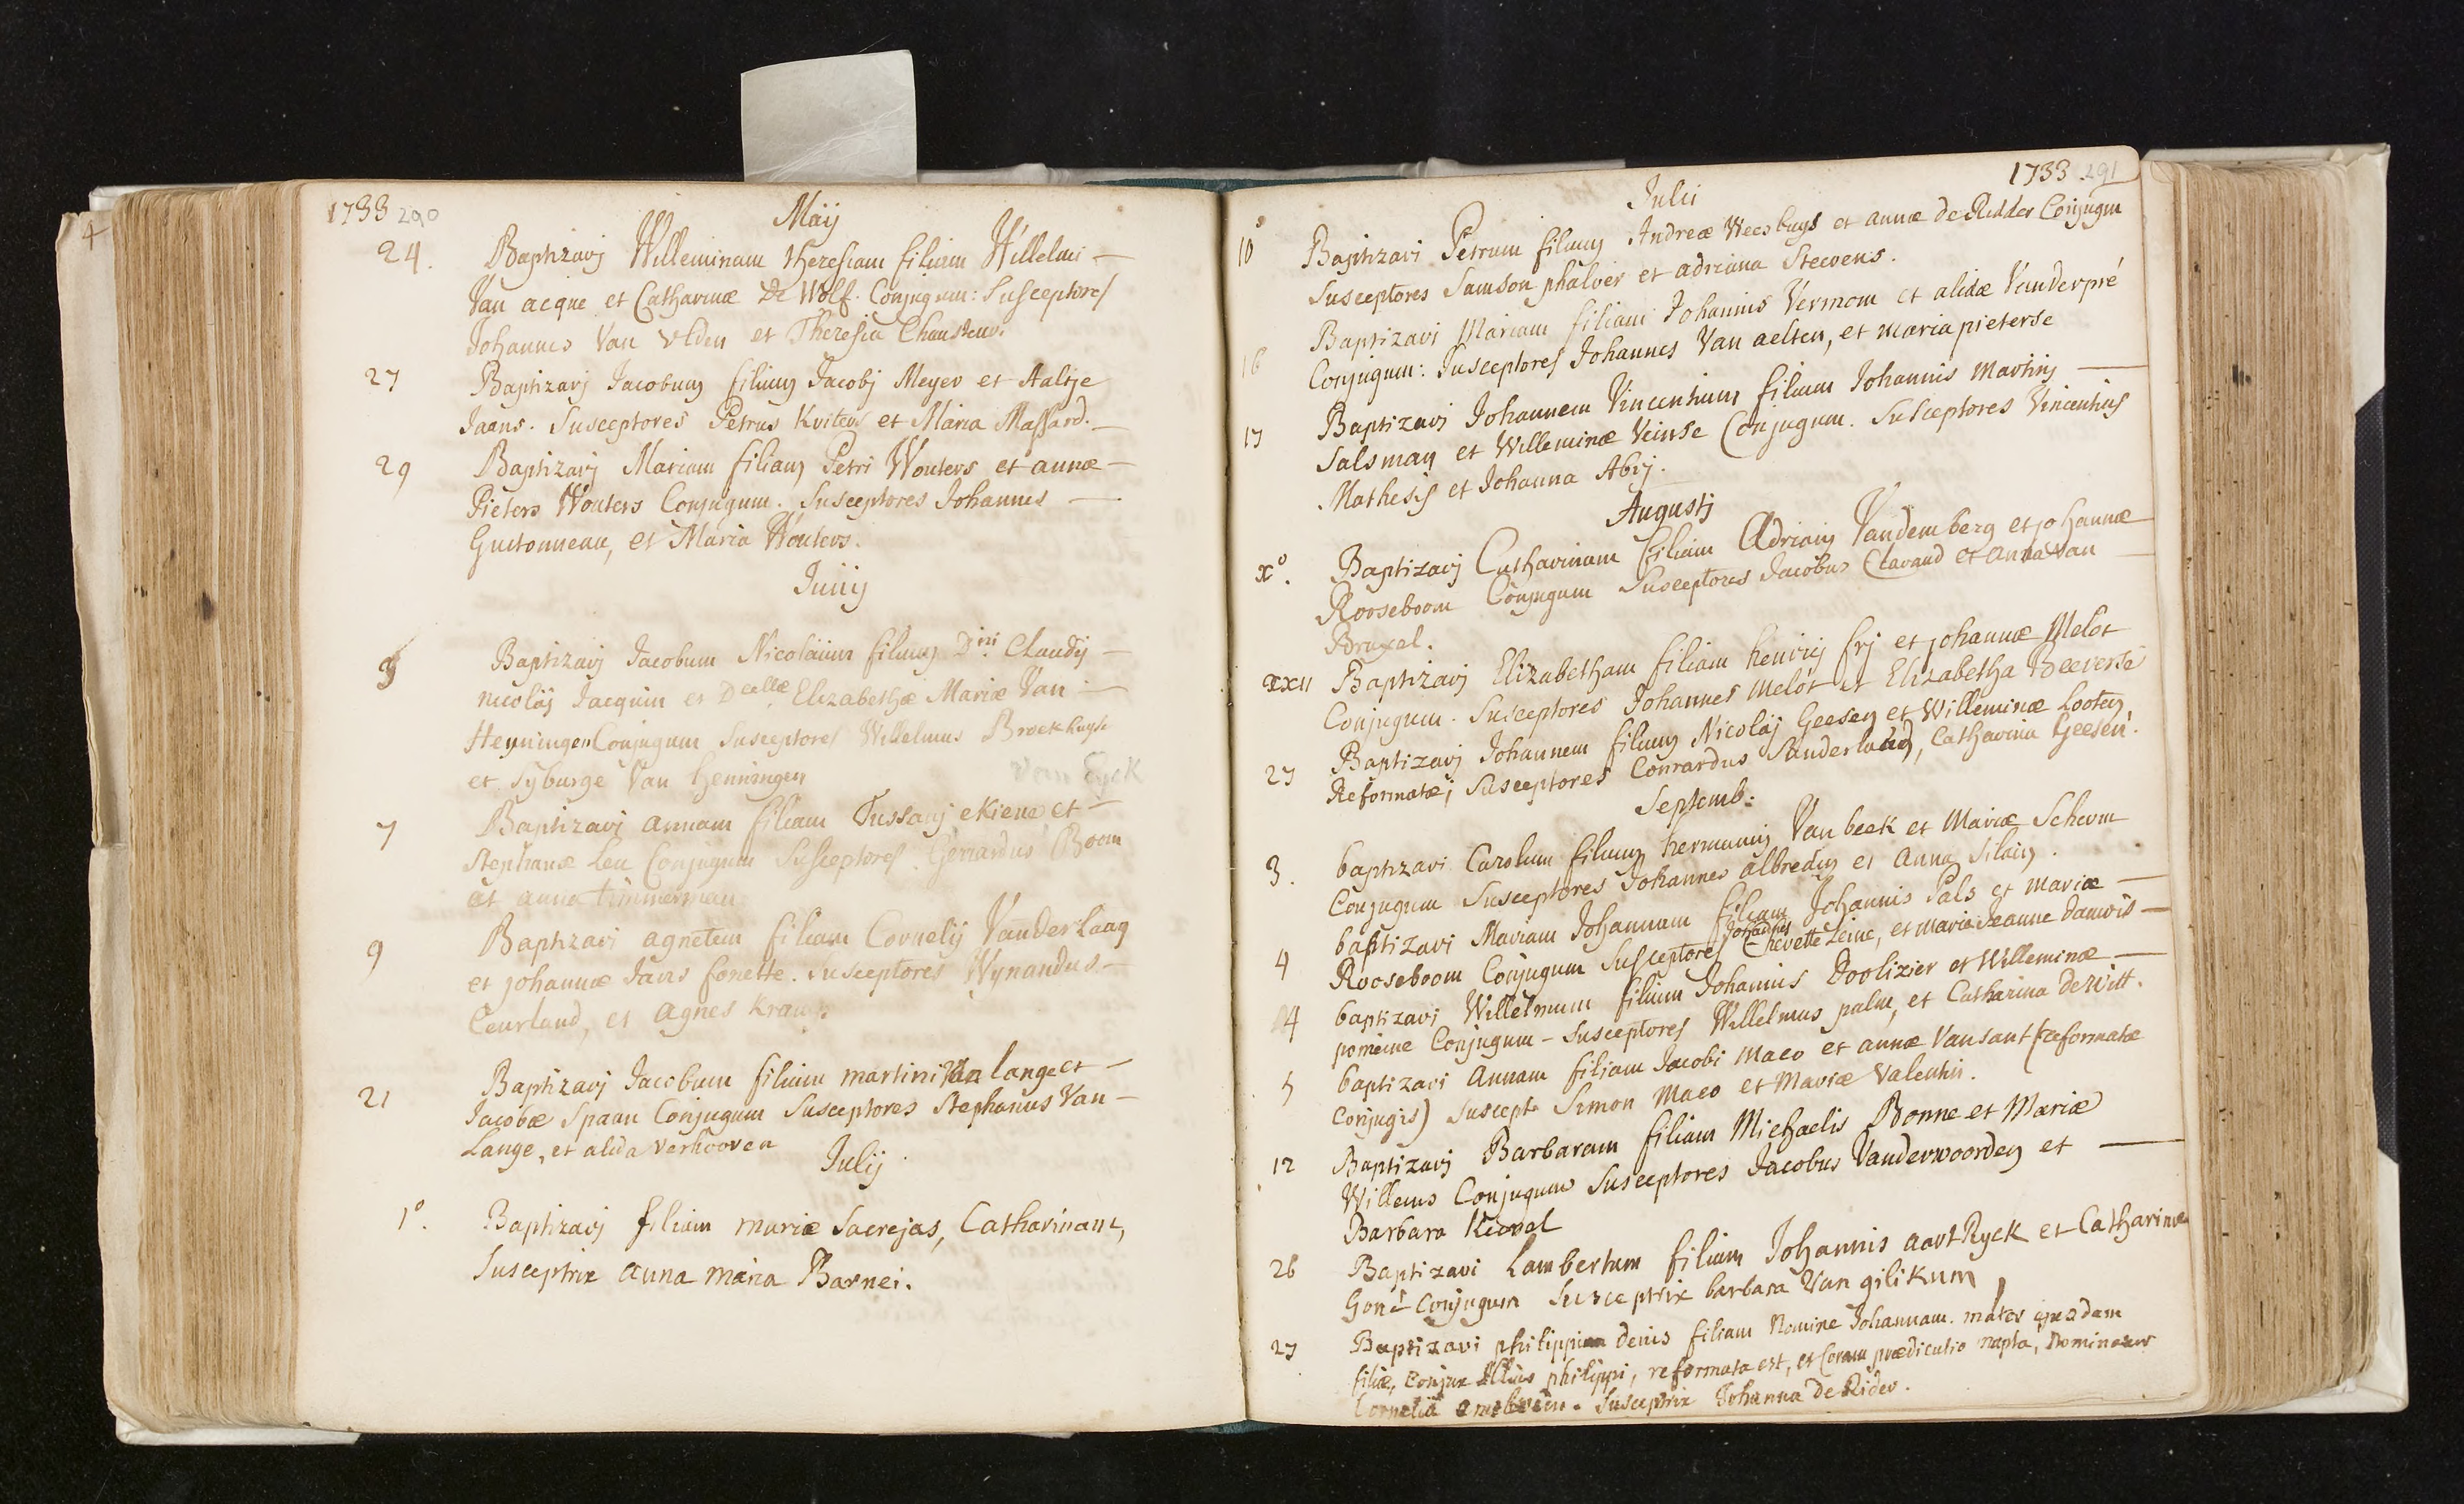 1733 290
Maij
24. Baptizavj Willeminam theresiam filiam Willelmi —
Van acque et Catharinæ De Wolf. Conjugum: Susceptores
Johannes Van Velden et Theresia
27 Baptizavj Jacobum filium Jacobj Meyer et Aaltje
Jaans. Susceptores Petrus et Maria Massard. —
29 Baptizavj Mariam filiam Petri Wouters et annæ —
Pieters Wouters Conjugum. Susceptores Johannes —
Guitonneau, et Maria Wouters.
Junij
Baptizavj Jacobum Nicolaum filium Dni Claudij —
nicolaj Jacquin et Dcellæ Elizabethæ Mariæ Van —
Heyningen Conjugum Susceptores Willelmus Broekhuyse
et Syburge Van henningen Van Eyck
7 Baptizavi annam filiam Tussanj ekiene et —
Stephanæ leu Conjugum Susceptores Gerardus Boom
et anna timmerman
9 Baptizavi agnetem filiam Cornelij Vander laag
et johannæ Jans fonette. Susceptores Wynandus —
Ceurland, et agnes
21 Baptizavj Jacobum filium martini Van lange et —
Jacobæ Spaan Conjugum Susceptores Stephanus Van —
Lange, et alida Verhooven
Julij
1o. Baptizavj filiam mariæ Sacrejas, Catharinam,
Susceptrix anna maria Barnei.
1733 291
Julii
10 Baptizavi Petrum filium Andreæ Weesbuys et annæ de Ridder Conjugum
Susceptores Samson phalver et adriana Steevens.
16 Baptizavi Mariam filiam Johannis Vermom et alidæ Vanderpré
Conjugum: Susceptores Johannes Van aelten, et maria pieterse
17 Baptizavj Johannem Vincentium filium Johannis Martinj —
Salsman et Willeminæ Veinse Conjugum. Susceptores Vincentius
Mathesis et Johanna Abrj.
Augustj
xo. Baptizavj Catharinam filiam Adrianj Vandemberg et johannæ
Rooseboom Conjugum Susceptores Jacobus Clavaud et anna van —
Bruxel.
xxii Baptizavj Elizabetham filiam henricj frj et johannæ Melot
Conjugum. Susceptores Johannes Melot et Elizabetha Beeverse
27 Baptizavj Johannem filium Nicolaj Geesen et Willeminæ Looten,
Reformatæ; Susceptores Conrardus Sanderland, Catharina Geesen.
Septemb:
3. baptizavi Carolum filium hermanni Van beek et Mariæ Schrom
Conjugum Susceptores Johannes albredus et Anna Silain.
4 baptizavi Mariam Johannam filiam Johannis Pals et mariæ —
Rooseboom Conjugum Susceptores Johannes Chevette Leine, et marie Jeanne dauwis —
4 baptizavi Willelmum filium Johannis Doolizier et Willeminæ —
pomeine Conjugum - Susceptores Willelmus palm, et Catharina de witt.
5 baptizavi Annam filiam Jacobi Maeo et annæ Vansant (reformatæ
Conjugis) Suscept. Simon Maeo et Mariæ Valentin.
12 Baptizavj Barbaram filiam Michaelis Bonne et Mariæ
Willems Conjugum Susceptores Jacobus Vanderwoorden et —
Barbara
26 Baptizavi Lambertum filium Johannis aart Ryck et Catharinæ
Gone Conjugum Susceptrix barbara Van gilikum
27 Baptizavi philippi denis filiam Nomine Johannam. mater ejusdem
filiæ, Conjux illius philippi, reformata est, et Coram prædicatio nupta, Nominatur
Cornelia Susceptrix Johanna de Rider.